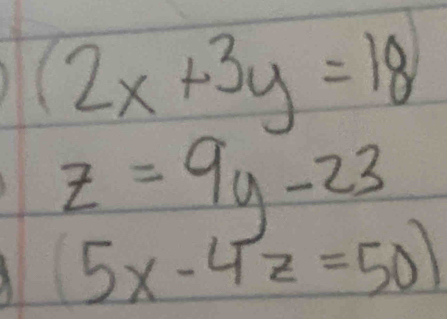 (2x + 3y = 18)
z = 9y - 23
(5x - 4z = 50)